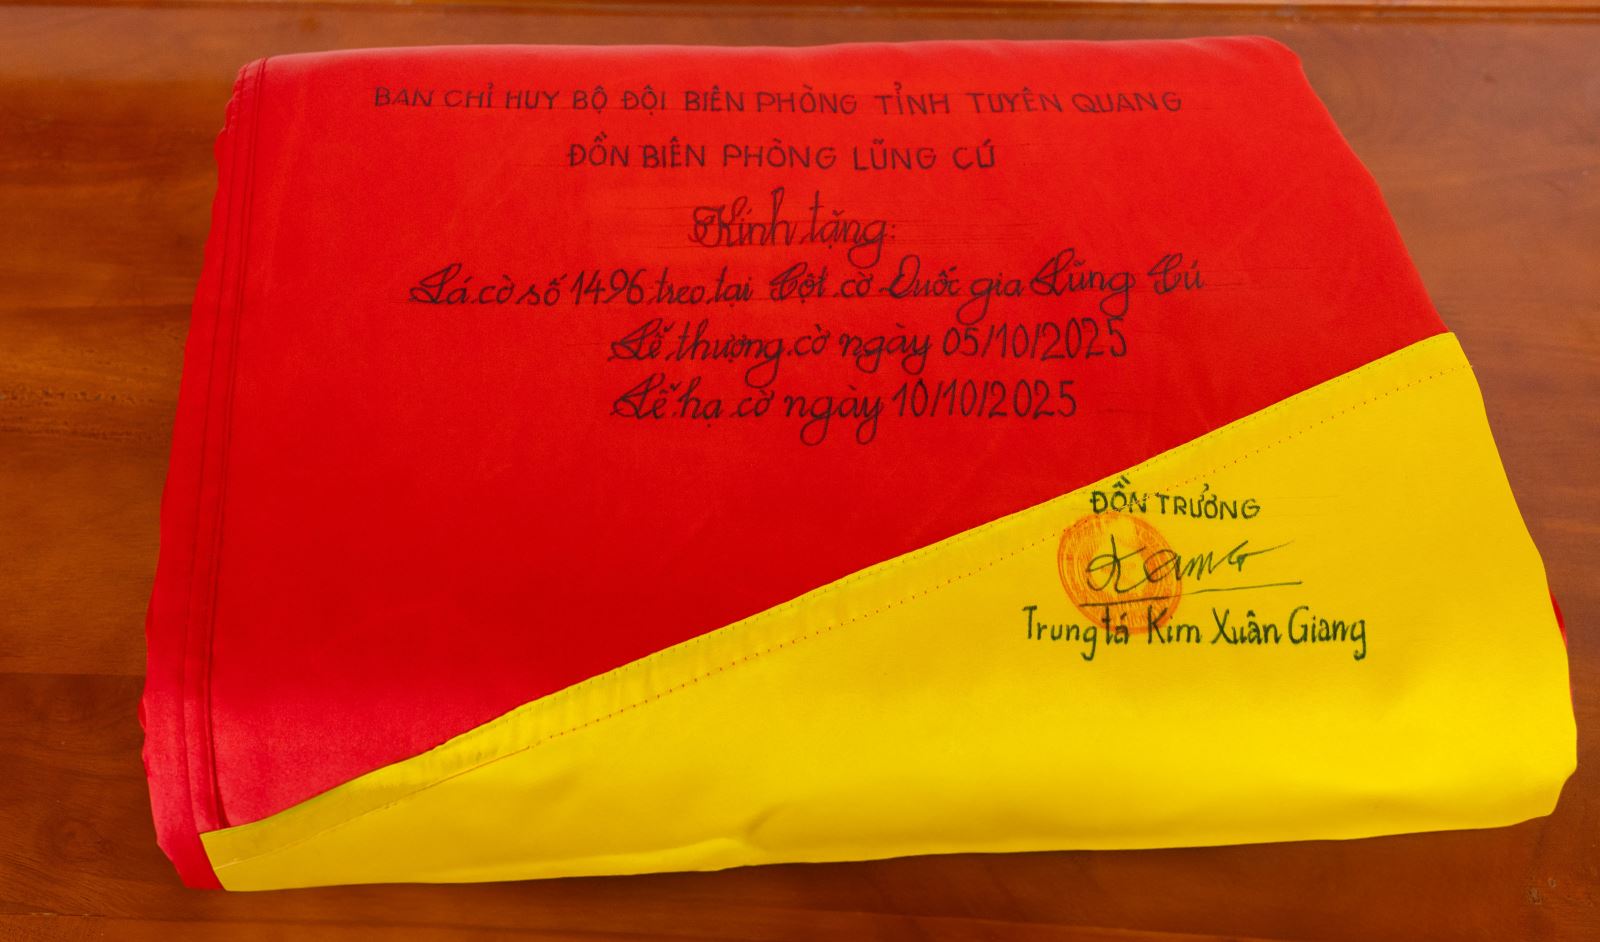 BAN CHỈ HUY BỘ ĐỘI BIÊN PHÒNG TỈNH TUYÊN QUANG
ĐỒN BIÊN PHÒNG LŨNG CÚ
Kính tặng:
Lá cờ số 1496 treo tại Cột cờ Quốc gia Lũng Cú
Lễ thượng cờ ngày 05/10/2025
Lễ hạ cờ ngày 10/10/2025
ĐỒN TRƯỞNG
Trung tá Kim Xuân Giang